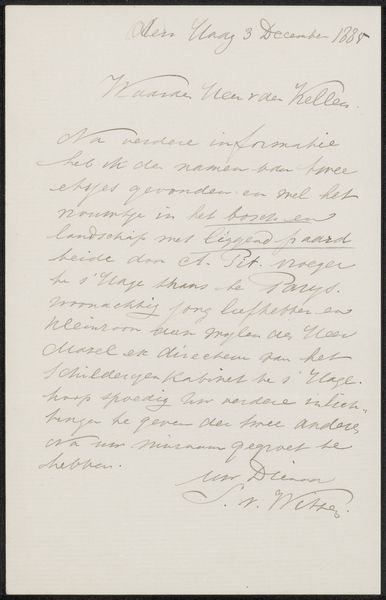 den Haag 3 December 1885
Waarden Heer v der Kellen.
Na verdere informatie
heb ik de namen van twee
etsjes gevonden en wel het
vrouwtje in het bosch en
landschap met liggend paard
beide door A. Pit. vroeger
te s'Hage thans te Parys.
woonachtig jong liefhebber en
kleinzoon van wylen den Heer
Mazel ex directeur van het
Schilderyen Kabinet te s'Hage.
hoop spoedig Uw verdere inlich-
tingen te geven der twee andere
Na uw minzaam gegroet te
hebben.
Uw Dienaar
S. v. Witsen